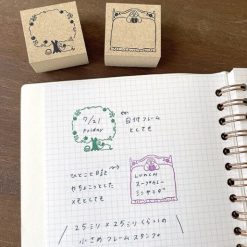 7/21
Friday
日付フレーム
としても
ひとこと日記
やちょこっとした
メモとしても
LUNCH
スープカレー
ミンサラダ
25ミリ×25ミリくらいの
小さめフレームスタンプ